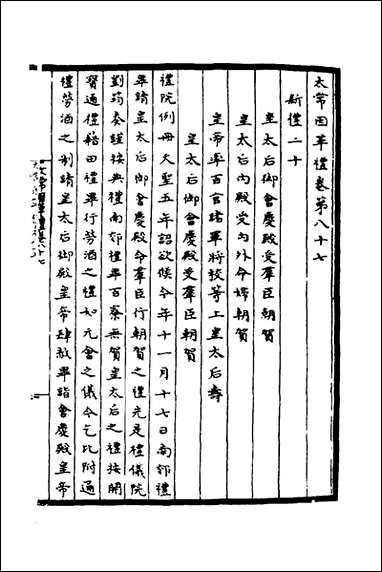 太常因革禮卷第八十七
新禮二十
皇太后御會慶殿受羣臣朝賀
皇太后內殿受內外命婦朝賀
皇帝率百官諸軍將校等上皇太后壽
皇太后御會慶殿受羣臣朝賀
禮院例冊天聖五年詔欲候今年十一月十七日南郊禮
畢請皇太后御會慶殿令羣臣行朝賀之禮先是禮儀院
劉筠奏謹按典禮南郊禮畢百寮無賀皇太后之禮按開
寶通禮籍田禮畢行勞酒之禮如元會之儀今乞比附通
禮勞酒之制請皇太后御殿皇帝肆赦畢詣會慶殿皇帝
太常因革禮卷八十七